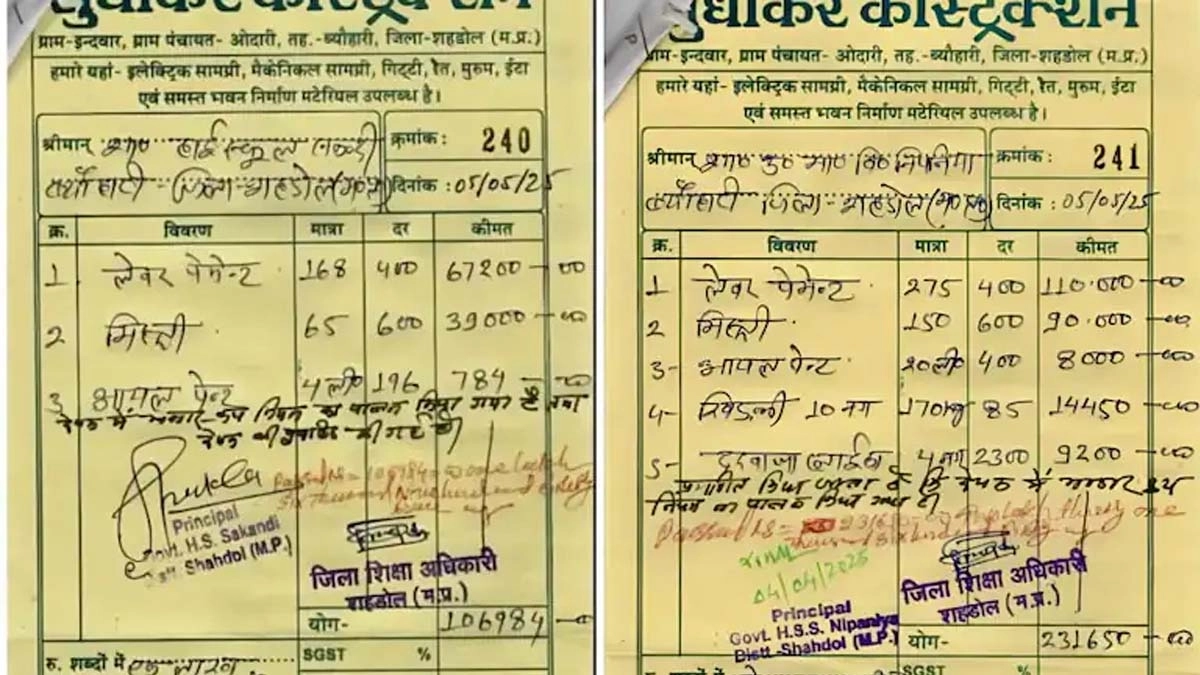 सुधाकर कंस्ट्रक्शन
ग्राम-इन्दवार, ग्राम पंचायत- ओदारी, तह.-ब्यौहारी, जिला-शहडोल (म.प्र.)
हमारे यहां- इलेक्ट्रिक सामग्री, मैकेनिकल सामग्री, गिट्टी, रेत, मुरुम, ईटा
एवं समस्त भवन निर्माण मटेरियल उपलब्ध है।
श्रीमान् शास० हाई स्कूल सकन्दी
क्रमांक : 240
ब्यौहारी जिला शहडोल (म०प्र०)
दिनांक : 05/05/25
क्र. विवरण मात्रा दर कीमत
1 लेवर पेमेन्ट 168 400 67200-00
2 मिस्त्री 65 600 39000-00
3 आयल पेन्ट 4 ली० 196 784-00
Principal
Govt. H.S. Sakandi
Distt. Shahdol (M.P.)
जिला शिक्षा अधिकारी
शहडोल (म.प्र.)
योग- 106984-00
रु. शब्दों में एक लाख
SGST %
सुधाकर कंस्ट्रक्शन
ग्राम-इन्दवार, ग्राम पंचायत- ओदारी, तह.-ब्यौहारी, जिला-शहडोल (म.प्र.)
हमारे यहां- इलेक्ट्रिक सामग्री, मैकेनिकल सामग्री, गिट्टी, रेत, मुरुम, ईटा
एवं समस्त भवन निर्माण मटेरियल उपलब्ध है।
श्रीमान् शास० उ० मा० वि० निपनिया
क्रमांक : 241
ब्यौहारी जिला- शहडोल (म०प्र०)
दिनांक : 05/05/25
क्र. विवरण मात्रा दर कीमत
1 लेवर पेमेन्ट 275 400 110.000-00
2 मिस्त्री 150 600 90.000-00
3- आयल पेन्ट 20 ली० 400 8000-00
4- खिड़की 10 नग 170 kg 85 14450-00
5- दरवाजा 4 नग 2300 9200-00
04/04/2025
Principal
Govt. H.S.S. Nipaniya
Distt.-Shahdol (M.P.)
जिला शिक्षा अधिकारी
शहडोल (म.प्र.)
योग- 231650-00
रु. शब्दों में
SGST %